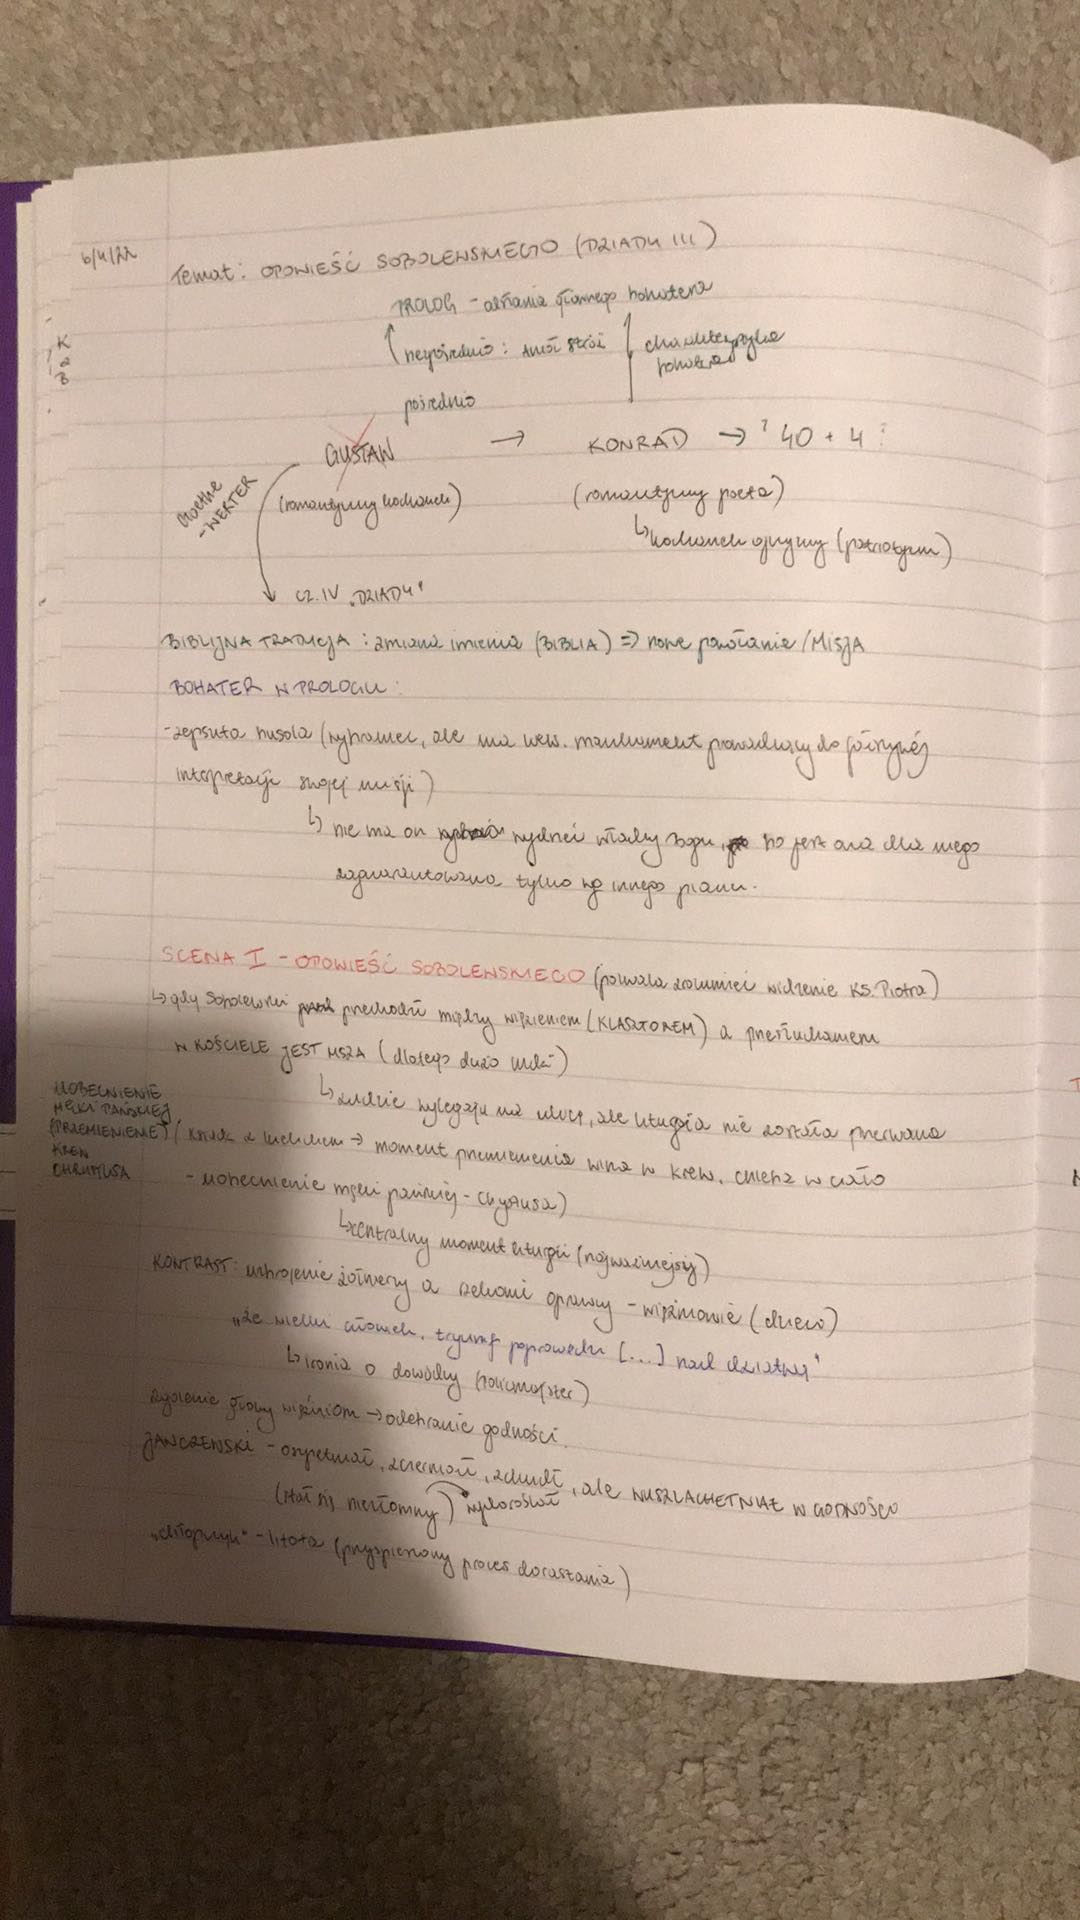 6/4/22
Temat: OPOWIEŚĆ SOBOLEWSKIEGO (DZIADY III)
PROLOG - działania głównego bohatera
bezpośrednio: Anioł Stróż
charakterystyka
bohatera
pośrednio
GUSTAW → KONRAD → ? 40 + 4 ?
(romantyczny kochanek) (romantyczny poeta)
Goethe
- WERTER
↳ kochanek ojczyzny (patriotyzm)
CZ. IV „DZIADY"
BIBLIJNA TRADYCJA: zmiana imienia (BIBLIA) => nowe powołanie / MISJA
BOHATER W PROLOGU:
- zepsuta busola (wybraniec, ale ma wew. prowadzący do fałszywej
interpretacji swojej misji)
↳ nie ma on wydrzeć władzy Bogu, bo jest ona dla niego
zagwarantowana tylko wg innego planu.
SCENA I - OPOWIEŚĆ SOBOLEWSKIEGO (pozwala zrozumieć widzenie KS. Piotra)
↳ gdy Sobolewski przechodzi między więzieniem (KLASZTOREM) a przesłuchaniem
W KOŚCIELE JEST MSZA (dlatego dużo ludzi)
↳ Ludzie wylegają na ulicę, ale liturgia nie została przerwana
UOBECNIENIE
MĘKI PAŃSKIEJ
(PRZEMIENIENIE)
KREW
CHRYSTUSA
(ksiądz z kielichem → moment przemienienia wina w krew, chleba w ciało
- uobecnienie męki pańskiej - Chrystusa)
↳ centralny moment liturgii (najważniejszy)
KONTRAST: uzbrojenie żołnierzy a rzekomi oprawcy - więźniowie (dzieci)
„że wielki człowiek, tryumf poprowadzi [...] nad dziatwy"
↳ ironia o dowódcy (policmajster)
zgolenie głowy więźniom → odebranie godności.
JANCZEWSKI - oszpetniał, sczerniał, schudł, ale WYSZLACHETNIAŁ W GODNOŚCI
(stał się niezłomny) wydoroślał
„chłopczyk" - litota (przyspieszony proces dorastania)